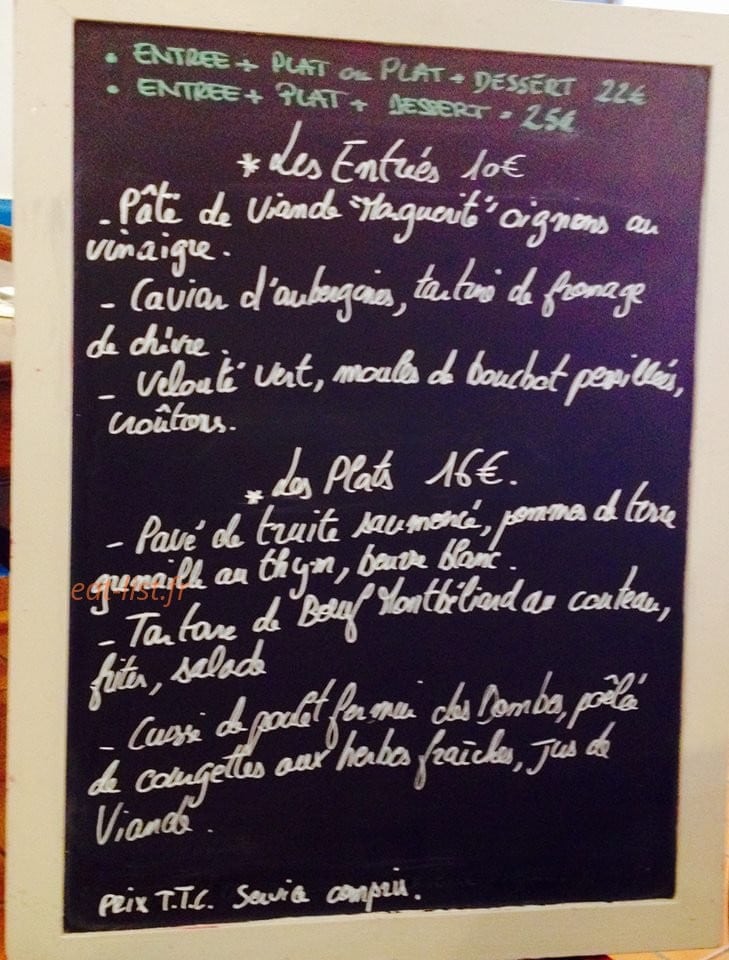 • ENTREE + PLAT ou PLAT + DESSERT 22€
• ENTREE + PLAT + DESSERT = 25€
* Les Entrées 10€
- Pâté de Viande "Marguerite" oignons au
vinaigre.
- Caviar d'aubergines, tartine de fromage
de chèvre.
- Velouté vert, moules de bouchot persillées,
croûtons.
* Les Plats 16€.
- Pavé de truite saumonée, pommes de terre
grenaille au thym, beurre blanc.
eat-list.fr
- Tartare de Boeuf Montbéliard au couteau,
frites, salade
- Cuisse de poulet fermier des Dombes, poêlé
de courgettes aux herbes fraîches, jus de
Viande.
Prix T.T.C. Service compris.